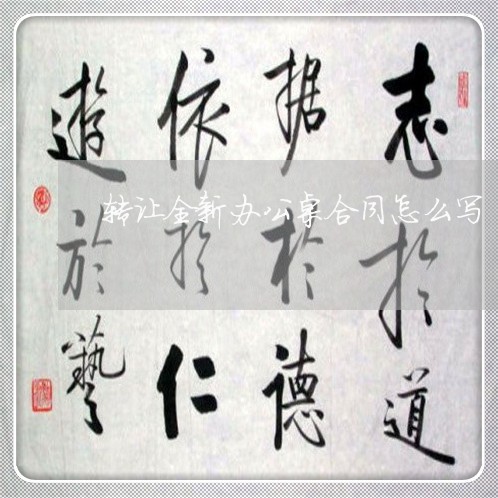 志於道
据於德
依於仁
遊於藝
转让全新办公桌合同怎么写